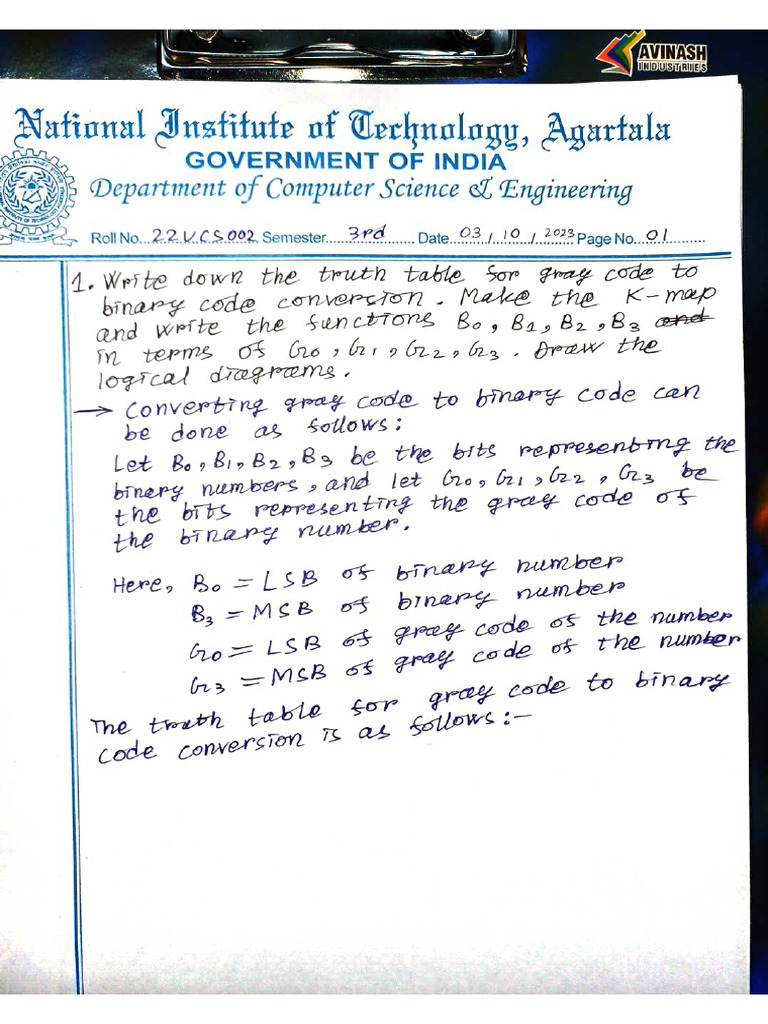 AVINASH
INDUSTRIES
National Institute of Technology, Agartala
GOVERNMENT OF INDIA
Department of Computer Science & Engineering
Roll No...22UCS002 Semester......3rd........ Date...03./.10./..2023 Page No...01..........
1. Write down the truth table for gray code to
binary code conversion. Make the K-map
and write the functions B0, B1, B2, B3 and
in terms of G0, G1, G2, G3. Draw the
logical diagrams.
→ Converting gray code to binary code can
be done as follows:
Let B0, B1, B2, B3 be the bits representing the
binary numbers, and let G0, G1, G2, G3 be
the bits representing the gray code of
the binary number.
Here, B0 = LSB of binary number
B3 = MSB of binary number
G0 = LSB of gray code of the number
G3 = MSB of gray code of the number
The truth table for gray code to binary
code conversion is as follows:-